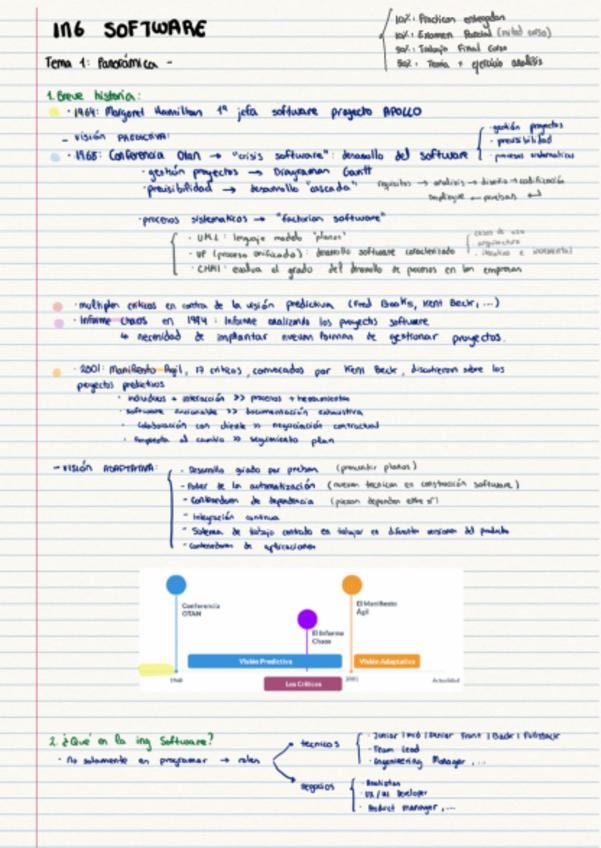 ING SOFTWARE
10%: Practicas entregables
10%: Examen Parcial (mitad curso)
30%: Trabajo Final Curso
50%: Teoría + ejercicio análisis
Tema 1: Panorámica -
1. Breve historia:
· 1964: Margaret Hamilton 1ª jefa software proyecto APOLLO
- VISIÓN PREDICTIVA:
· 1968: Conferencia Otan → "crisis software": desarrollo del software
· gestión proyectos
· previsibilidad
· procesos sistematicos
· gestión proyectos → Diagramas Gantt
· previsibilidad → desarrollo "cascada"
requisitos → analisis → diseño → codificación
despliegue ← pruebas ↵
· procesos sistematicos → "factorias software"
· UML: lenguaje modelo "planos"
· UP (proceso unificado): desarrollo software caracterizado
casos de uso
arquitectura
iterativo e incremental
· CMMI: evalua el grado del desarrollo de procesos en las empresas
· multiples criticos en contra de la visión predictiva (Fred Books, Kent Beck, ...)
· Informe Chaos en 1994: Informe analizando los proyectos software
↳ necesidad de implantar nuevas formas de gestionar proyectos.
· 2001: Manifiesto Agil, 17 criticos, convocados por Kent Beck, discutieron sobre los
proyectos predictivos
· individuos + interacción >> procesos + herramientas
· software funcionable >> documentación exhaustiva
· Colaboración con cliente >> negociación contractual
· Respuesta al cambio >> seguimiento plan
- VISIÓN ADAPTATIVA:
- Desarrollo guiado por pruebas (presumir planos)
- Poder de la automatización (nuevas tecnicas en construcción software)
- Contenedores de dependencia (piezas dependen entre sí)
- Integración continua
- Sistema de trabajo centrado en trabajar en diferentes versiones del producto
- Contenedores de aplicaciones
Conferencia
OTAN
El Informe
Chaos
El Manifiesto
Ágil
Visión Predictiva
Visión Adaptativa
1968
Los Críticos
2001
Actualidad
2. ¿Qué es la ing Software?
· No solamente es programar → roles
tecnicos
· Junior / mid / Senior Front / Back / Fullstack
· Team Lead
· Engineering Manager, ...
negocios
· Analistas
· UX/UI Developer
· Product manager, ...